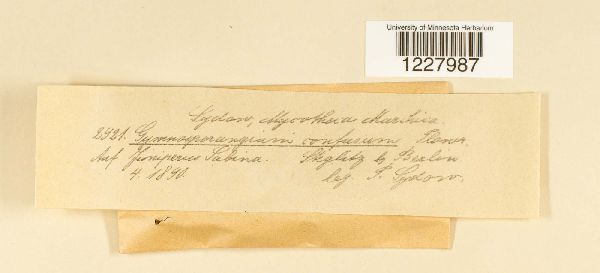 University of Minnesota Herbarium
1227987
Sydow, Mycotheca Marchica.
2921. Gymnosporangium confusum Plowr.
Auf Juniperus Sabina. Steglitz b. Berlin
4. 1890. leg. P. Sydow.